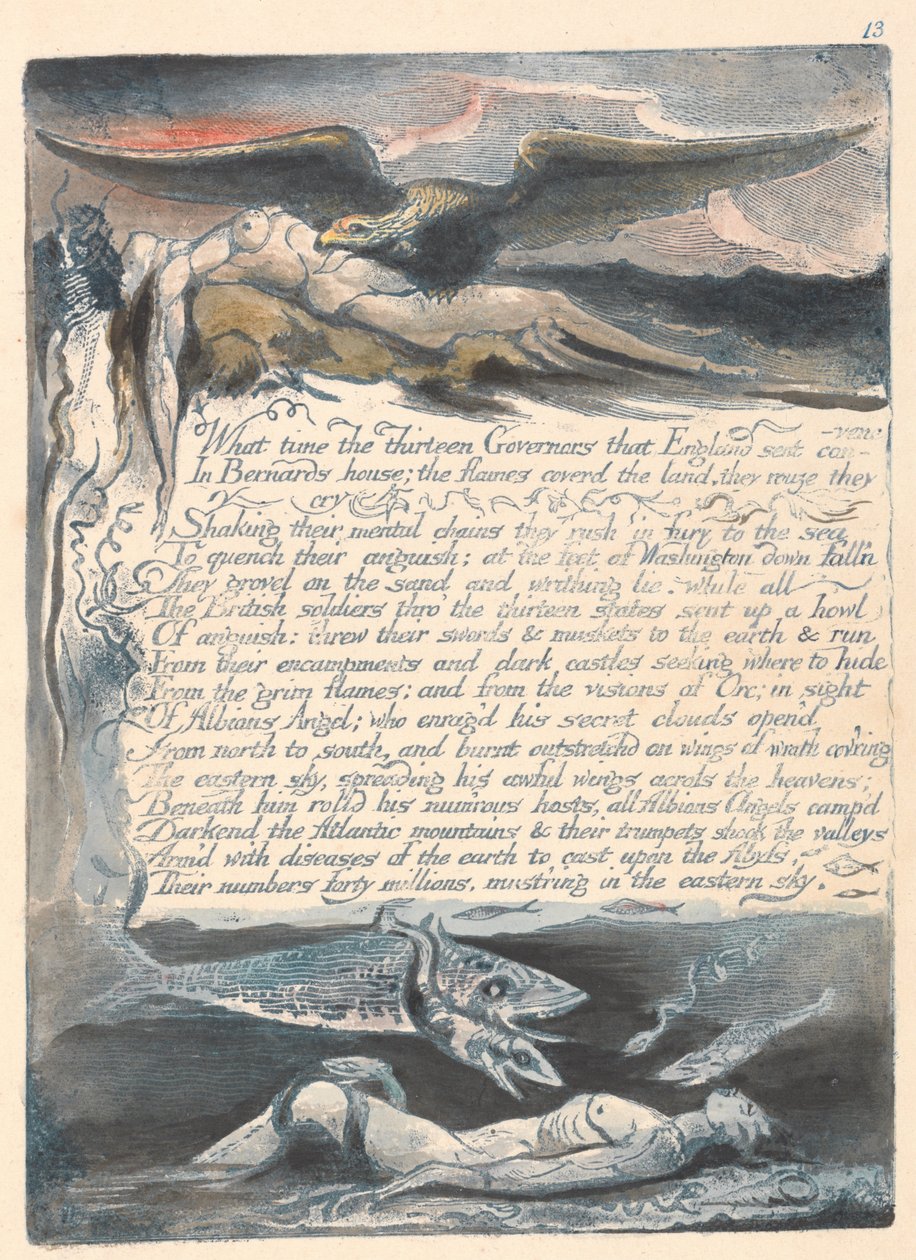 13
-vene
What time the thirteen Governors that England sent con-
In Bernards house; the flames coverd the land, they rouze they
cry
Shaking their mental chains they rush in fury to the sea
To quench their anguish; at the feet of Washington down fall'n
They grovel on the sand and writhing lie. while all
The British soldiers thro the thirteen states sent up a howl
Of anguish: threw their swords & muskets to the earth & run
From their encampments and dark castles seeking where to hide
From the grim flames; and from the visions of Orc; in sight
Of Albions Angel; who enrag'd his secret clouds open'd
From north to south, and burnt outstretchd on wings of wrath cov'ring
The eastern sky, spreading his awful wings across the heavens;
Beneath him rolld his numrous hosts, all Albions Angels camp'd
Darkend the Atlantic mountains & their trumpets shook the valleys
Arm'd with diseases of the earth to cast upon the Abyss,
Their numbers forty millions, must'ring in the eastern sky.